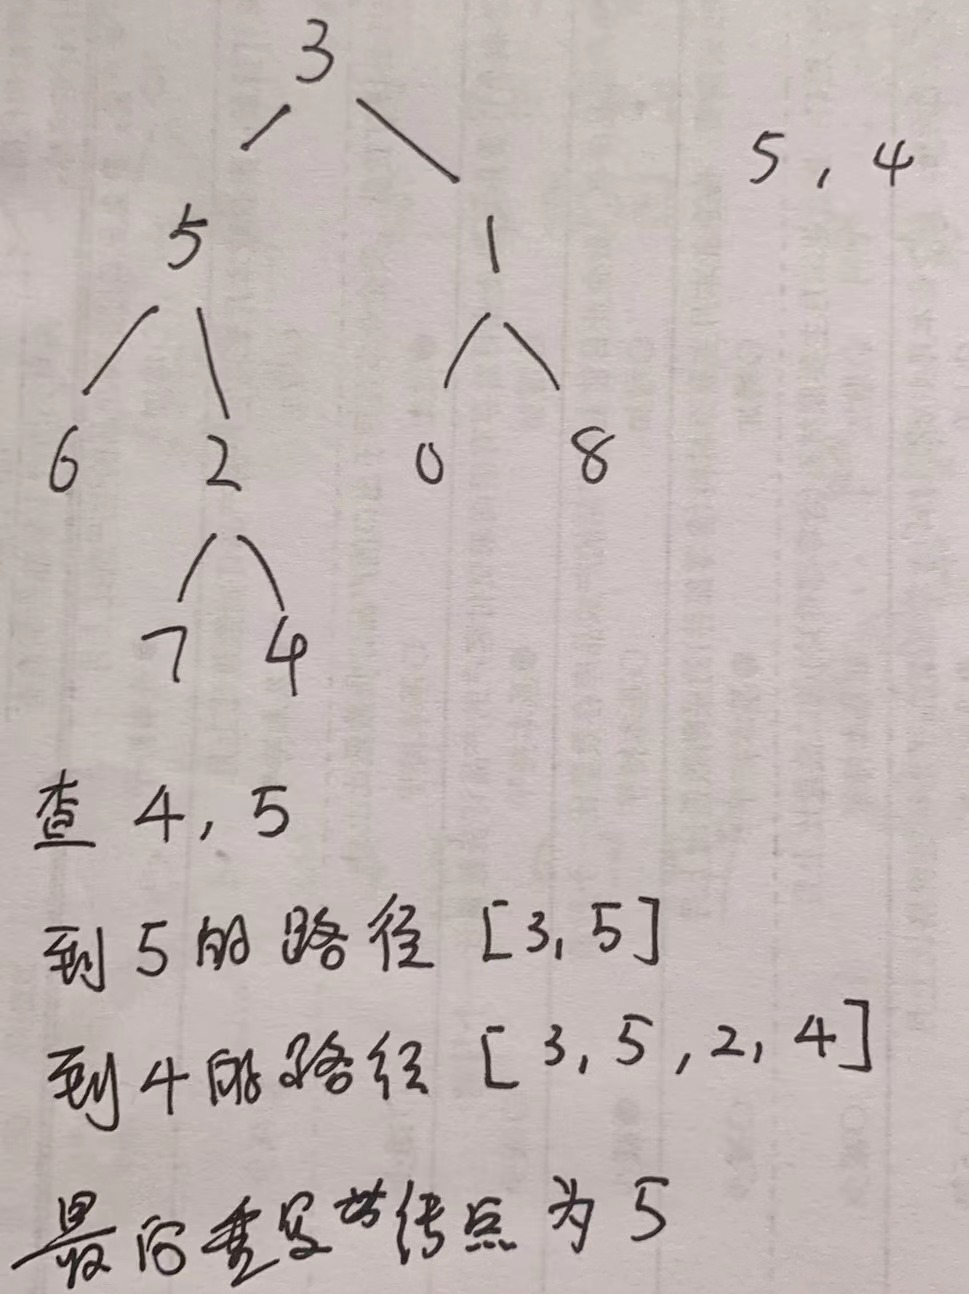 3
5 , 4
5 1
6 2 0 8
7 4
查 4, 5
到 5 的 路 径 [3, 5]
到 4 的 路 径 [3, 5, 2, 4]
最后重 点 为 5